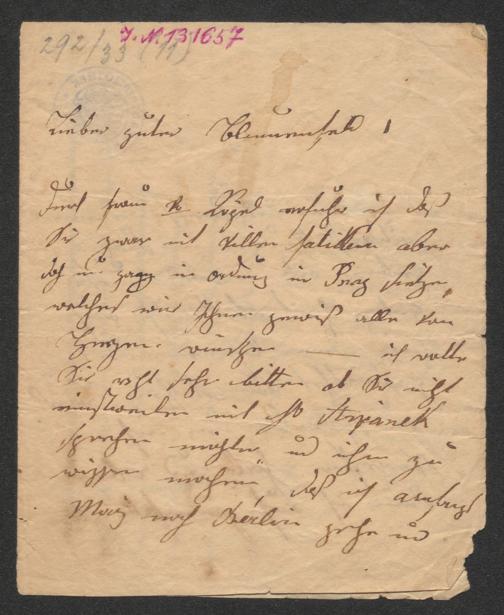 292/33 (11)
J. N. 131657
Lieber guter Blumenfeld!
Durch Frau v. erfuhr ich daß
Sie zwar mit aber
doch in Ordnung in Prag
welches wir Ihnen gewiß alle von
Herzen wünschen — ich wollte
Sie recht sehr bitten ob Sie nicht
einstweilen mit Stiepanek
sprechen möchten, und ihm zu
wissen machen, daß ich anfangs
May nach Berlin gehe und